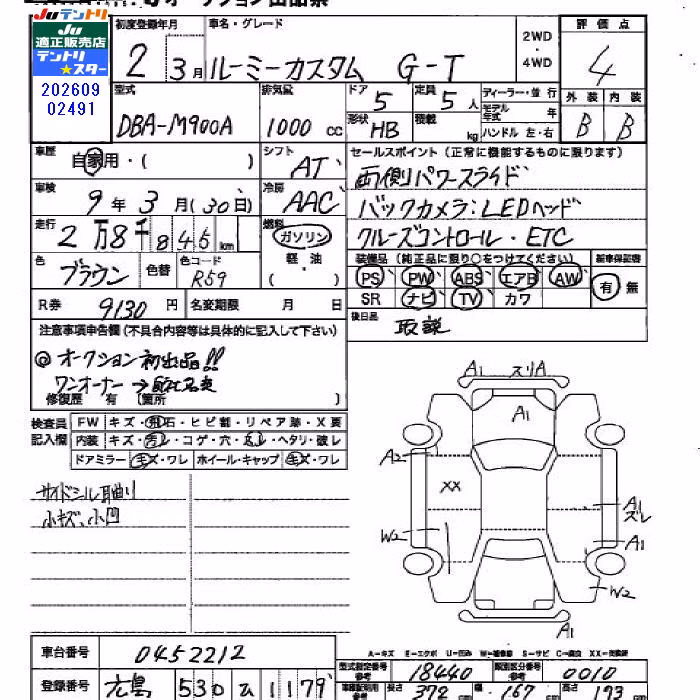 Juテントリ
Ju
適正販売店
テントリ
★スター
202609
02491
初度登録年月
2 3月
車名・グレード
ルーミーカスタム G-T
2WD
・
4WD
評価点
4
型式
DBA-M900A
排気量
1000 cc
ドア 5
定員 5人
形状 HB
積載 kg
ディーラー・並行
モデル年式 年
ハンドル 左・右
外装 内装
B B
車歴
自家用・( )
シフト
AT
セールスポイント (正常に機能するものに限ります)
両側パワースライド
バックカメラ:LEDヘッド
クルーズコントロール・ETC
車検
9年3月(30日)
冷房
AAC
走行
2万8千845km
燃料
ガソリン
軽油
( )
色
ブラウン
色替
色コード
R59
装備品 (純正品に限り○をつけてください)
新車保証書
PS PW ABS エアB AW
有 無
SR ナビ TV カワ
R券 9130円
名変期限 月 日
後日品
取説
注意事項申告欄 (不具合内容等は具体的に記入して下さい)
◎オークション初出品!!
ワンオーナー→
修復歴 有 (箇所 )
検査員
記入欄
FW キズ・飛石・ヒビ割・リペア跡・X要
内装 キズ・汚レ・コゲ・穴・ ・ヘタリ・破レ
ドアミラー キズ・ワレ ホイール・キャップ キズ・ワレ
サイドシル 曲り
小キズ、小凹
A1 スリA
A1
A2
XX
W2
A1
ズレ
A1
W2
A1
A=キズ E=エクボ U=凹み W=補修跡 S=サビ C=腐食 XX=交換済
車台番号 0452212
登録番号 広島 530 1179
型式指定番号
参考
18440
類別区分番号
参考
0010
長さ 372 167 173